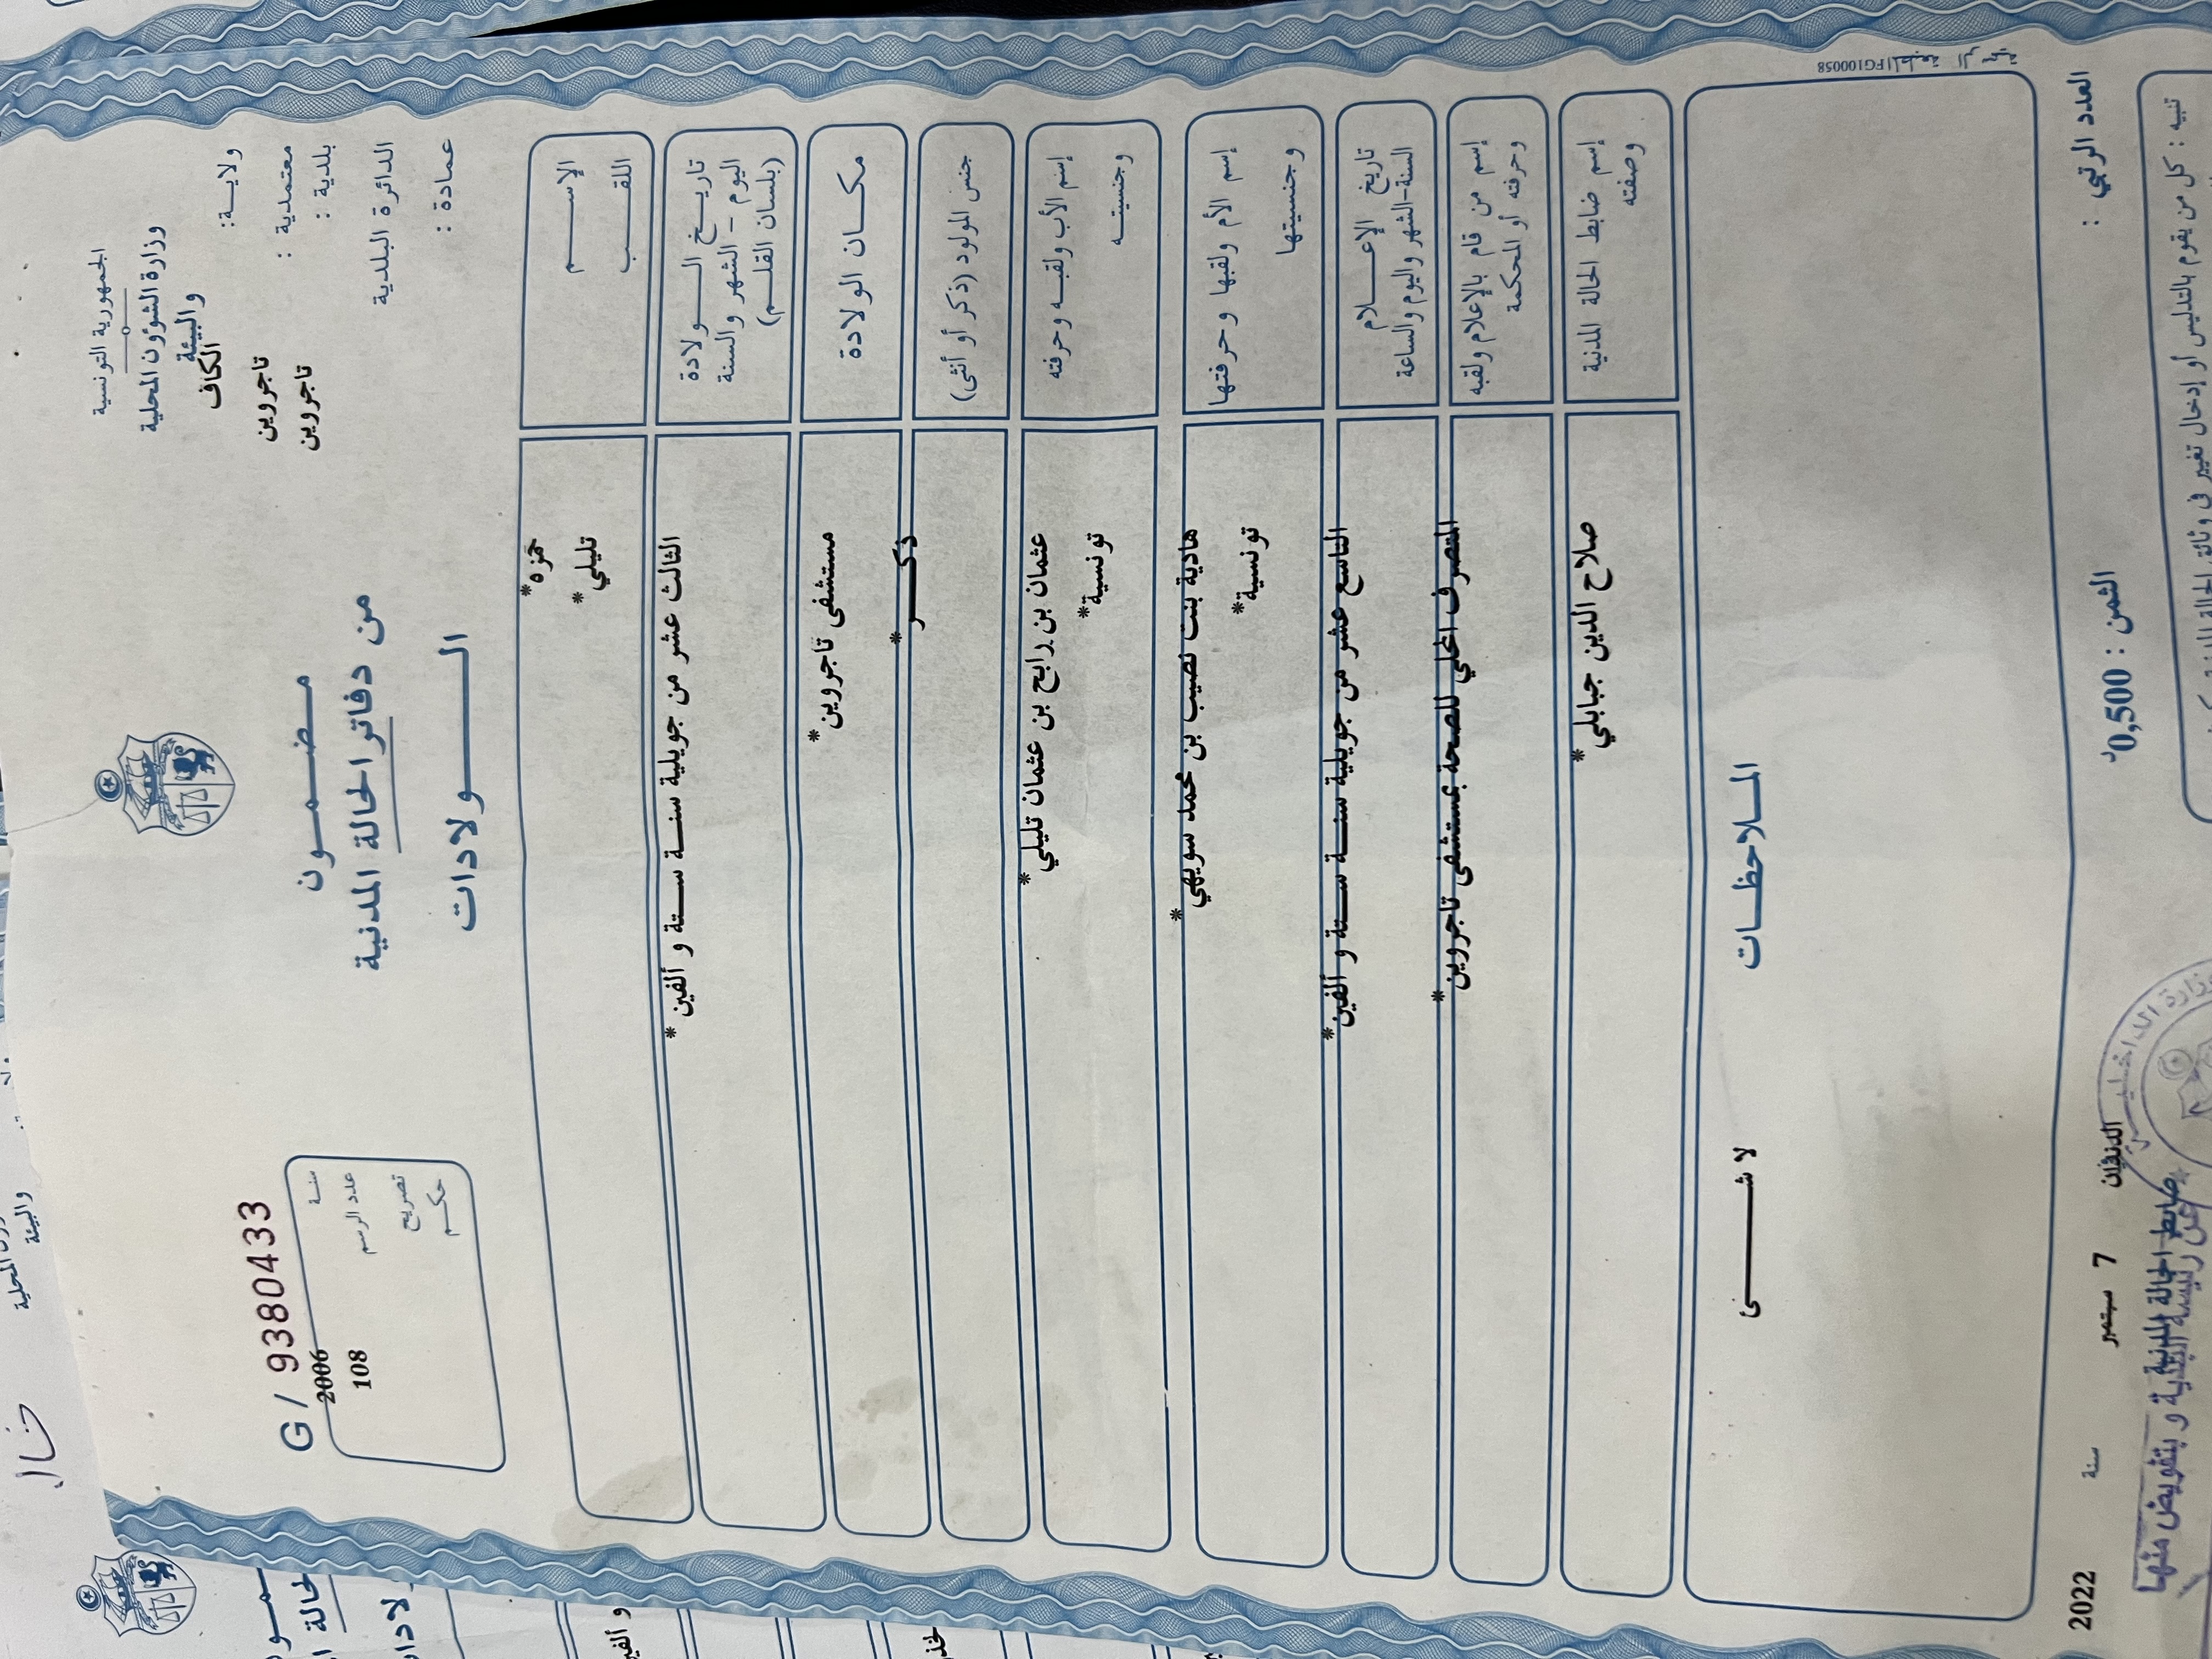 الجمهورية التونسية
وزارة الشؤون المحلية
والبيئة
ولاية: الكاف
معتمدية : تاجروين
بلدية : تاجروين
الدائرة البلدية
عمادة :
G/ 93880433
سنة 2006
عدد الرسم 108
تصريح
حكم
مضمون
من دفاتر الحالة المدنية
الولادات
الإسم حمزه*
اللقب تليلي*
تاريخ الولادة
اليوم - الشهر والسنة
(بلسان القلم)
الثالث عشر من جويلية سنة ستة و ألفين*
مكان الولادة
مستشفى تاجروين*
جنس المولود (ذكر أو أنثى)
ذكر*
إسم الأب ولقبه وحرفته
عثمان بن رابح بن عثمان تليلي*
وجنسيته
تونسية*
إسم الأم ولقبها وحرفتها
هادية بنت نصيب بن محمد سويهي*
وجنسيتها
تونسية*
تاريخ الإعلام
السنة-الشهر واليوم والساعة
التاسع عشر من جويلية سنة ستة و ألفين*
إسم من قام بالإعلام ولقبه
وحرفته أو المحكمة
المتصرف المحلي للصحة بمستشفى تاجروين*
إسم ضابط الحالة المدنية
وصفته
صلاح الدين جبابلي*
الملاحظات
لا شئ
FG100058
العدد الرتبي :
الثمن : 0,500د
7 سبتمبر سنة 2022
ضابط الحالة المدنية
عن رئيسة البلدية و بتفويض منها
وزارة الداخلية
تنبيه : كل من يقوم بالتدليس أو إدخال تغيير في وثائق الحالة المدنية
والبيئة